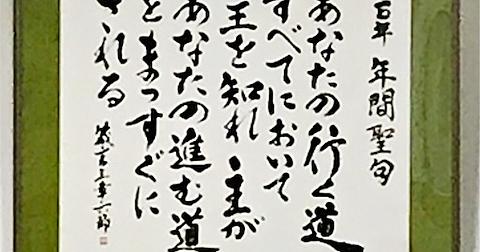 百年 年間聖句
あなたの行く道
すべてにおいて
主を知れ 主が
あなたの進む道
をまっすぐに
される
箴言三章六節